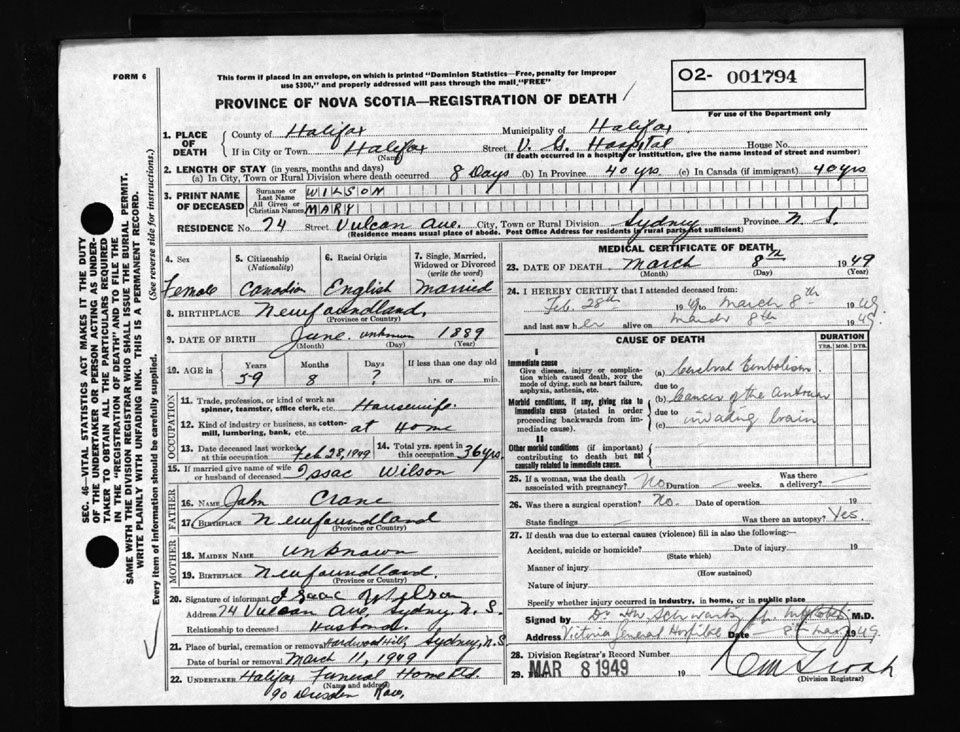 FORM 6
This form if placed in an envelope, on which is printed "Dominion Statistics—Free, penalty for improper
use $300," and properly addressed will pass through the mail "FREE"
O2- 001794
For use of the Department only
PROVINCE OF NOVA SCOTIA—REGISTRATION OF DEATH
1. PLACE OF DEATH
County of Halifax Municipality of Halifax
If in City or Town Halifax Street V. G. Hospital House No.
(Name) (If death occurred in a hospital or institution, give the name instead of street and number)
2. LENGTH OF STAY (in years, months and days)
(a) In City, Town or Rural Division where death occurred 8 Days (b) In Province 40 yrs. (c) In Canada (if immigrant) 40 yrs
3. PRINT NAME OF DECEASED
Surname or Last Name WILSON
All Given or Christian Names MARY
RESIDENCE No. 74 Street Vulcan Ave. City, Town or Rural Division Sydney Province N. S.
(Residence means usual place of abode. Post Office Address for residents in rural parts not sufficient)
4. Sex 5. Citizenship (Nationality) 6. Racial Origin 7. Single, Married, Widowed or Divorced (write the word)
Female Canadian English Married
8. BIRTHPLACE Newfoundland
(Province or Country)
9. DATE OF BIRTH June unknown 1889
(Month) (Day) (Year)
10. AGE Years Months Days If less than one day old
59 8 ? hrs. or min.
OCCUPATION
11. Trade, profession, or kind of work as
spinner, teamster, office clerk, etc. Housewife
12. Kind of industry or business, as cotton-
mill, lumbering, bank, etc. at Home
13. Date deceased last worked at this occupation Feb 28, 1949 14. Total yrs. spent in this occupation 36 yrs.
15. If married give name of wife
or husband of deceased Issac Wilson
FATHER
16. NAME John Crane
17. BIRTHPLACE Newfoundland
(Province or Country)
MOTHER
18. MAIDEN NAME unknown
19. BIRTHPLACE Newfoundland.
(Province or Country)
20. Signature of informant Isaac Wilson
Address 74 Vulcan Ave, Sydney N. S.
Relationship to deceased Husband
21. Place of burial, cremation or removal Hardwood Hill, Sydney, N. S.
Date of burial or removal March 11, 1949
22. UNDERTAKER Halifax Funeral Home Ltd.
(Name and address)
90 Dresden Row,
MEDICAL CERTIFICATE OF DEATH
23. DATE OF DEATH March 8th 1949
(Month) (Day) (Year)
24. I HEREBY CERTIFY that I attended deceased from:
Feb. 28th 1949 to March 8th 1949.
and last saw her alive on March 8th 1949.
CAUSE OF DEATH
DURATION
YRS. MOS. DYS.
I
Immediate cause
Give disease, injury or complication which caused death, not the mode of dying, such as heart failure, asphyxia, asthenia, etc.
(a) Cerebral Embolism
due to
Morbid conditions, if any, giving rise to immediate cause (stated in order proceeding backwards from immediate cause).
(b) Cancer of the Antrum
due to
(c) invading brain
II
Other morbid conditions (if important) contributing to death but not causally related to immediate cause.
25. If a woman, was the death associated with pregnancy? No Duration — weeks. Was there a delivery? —
26. Was there a surgical operation? No. Date of operation 19
State findings Was there an autopsy? Yes.
27. If death was due to external causes (violence) fill in also the following:—
Accident, suicide or homicide? Date of injury 19
(State which)
Manner of injury
(How sustained)
Nature of injury
Specify whether injury occurred in industry, in home, or in public place
Signed by Dr. Schwartz M.D.
Address Victoria General Hospital Date 8th Mar 1949.
28. Division Registrar's Record Number
29. MAR 8 1949 19
(Division Registrar)
SEC. 46—VITAL STATISTICS ACT MAKES IT THE DUTY
OF THE UNDERTAKER OR PERSON ACTING AS UNDER-
TAKER TO OBTAIN ALL THE PARTICULARS REQUIRED
IN THE "REGISTRATION OF DEATH" AND TO FILE THE
SAME WITH THE DIVISION REGISTRAR WHO SHALL ISSUE THE BURIAL PERMIT.
WRITE PLAINLY WITH UNFADING INK. THIS IS A PERMANENT RECORD.
Every item of information should be carefully supplied. (See reverse side for instructions.)